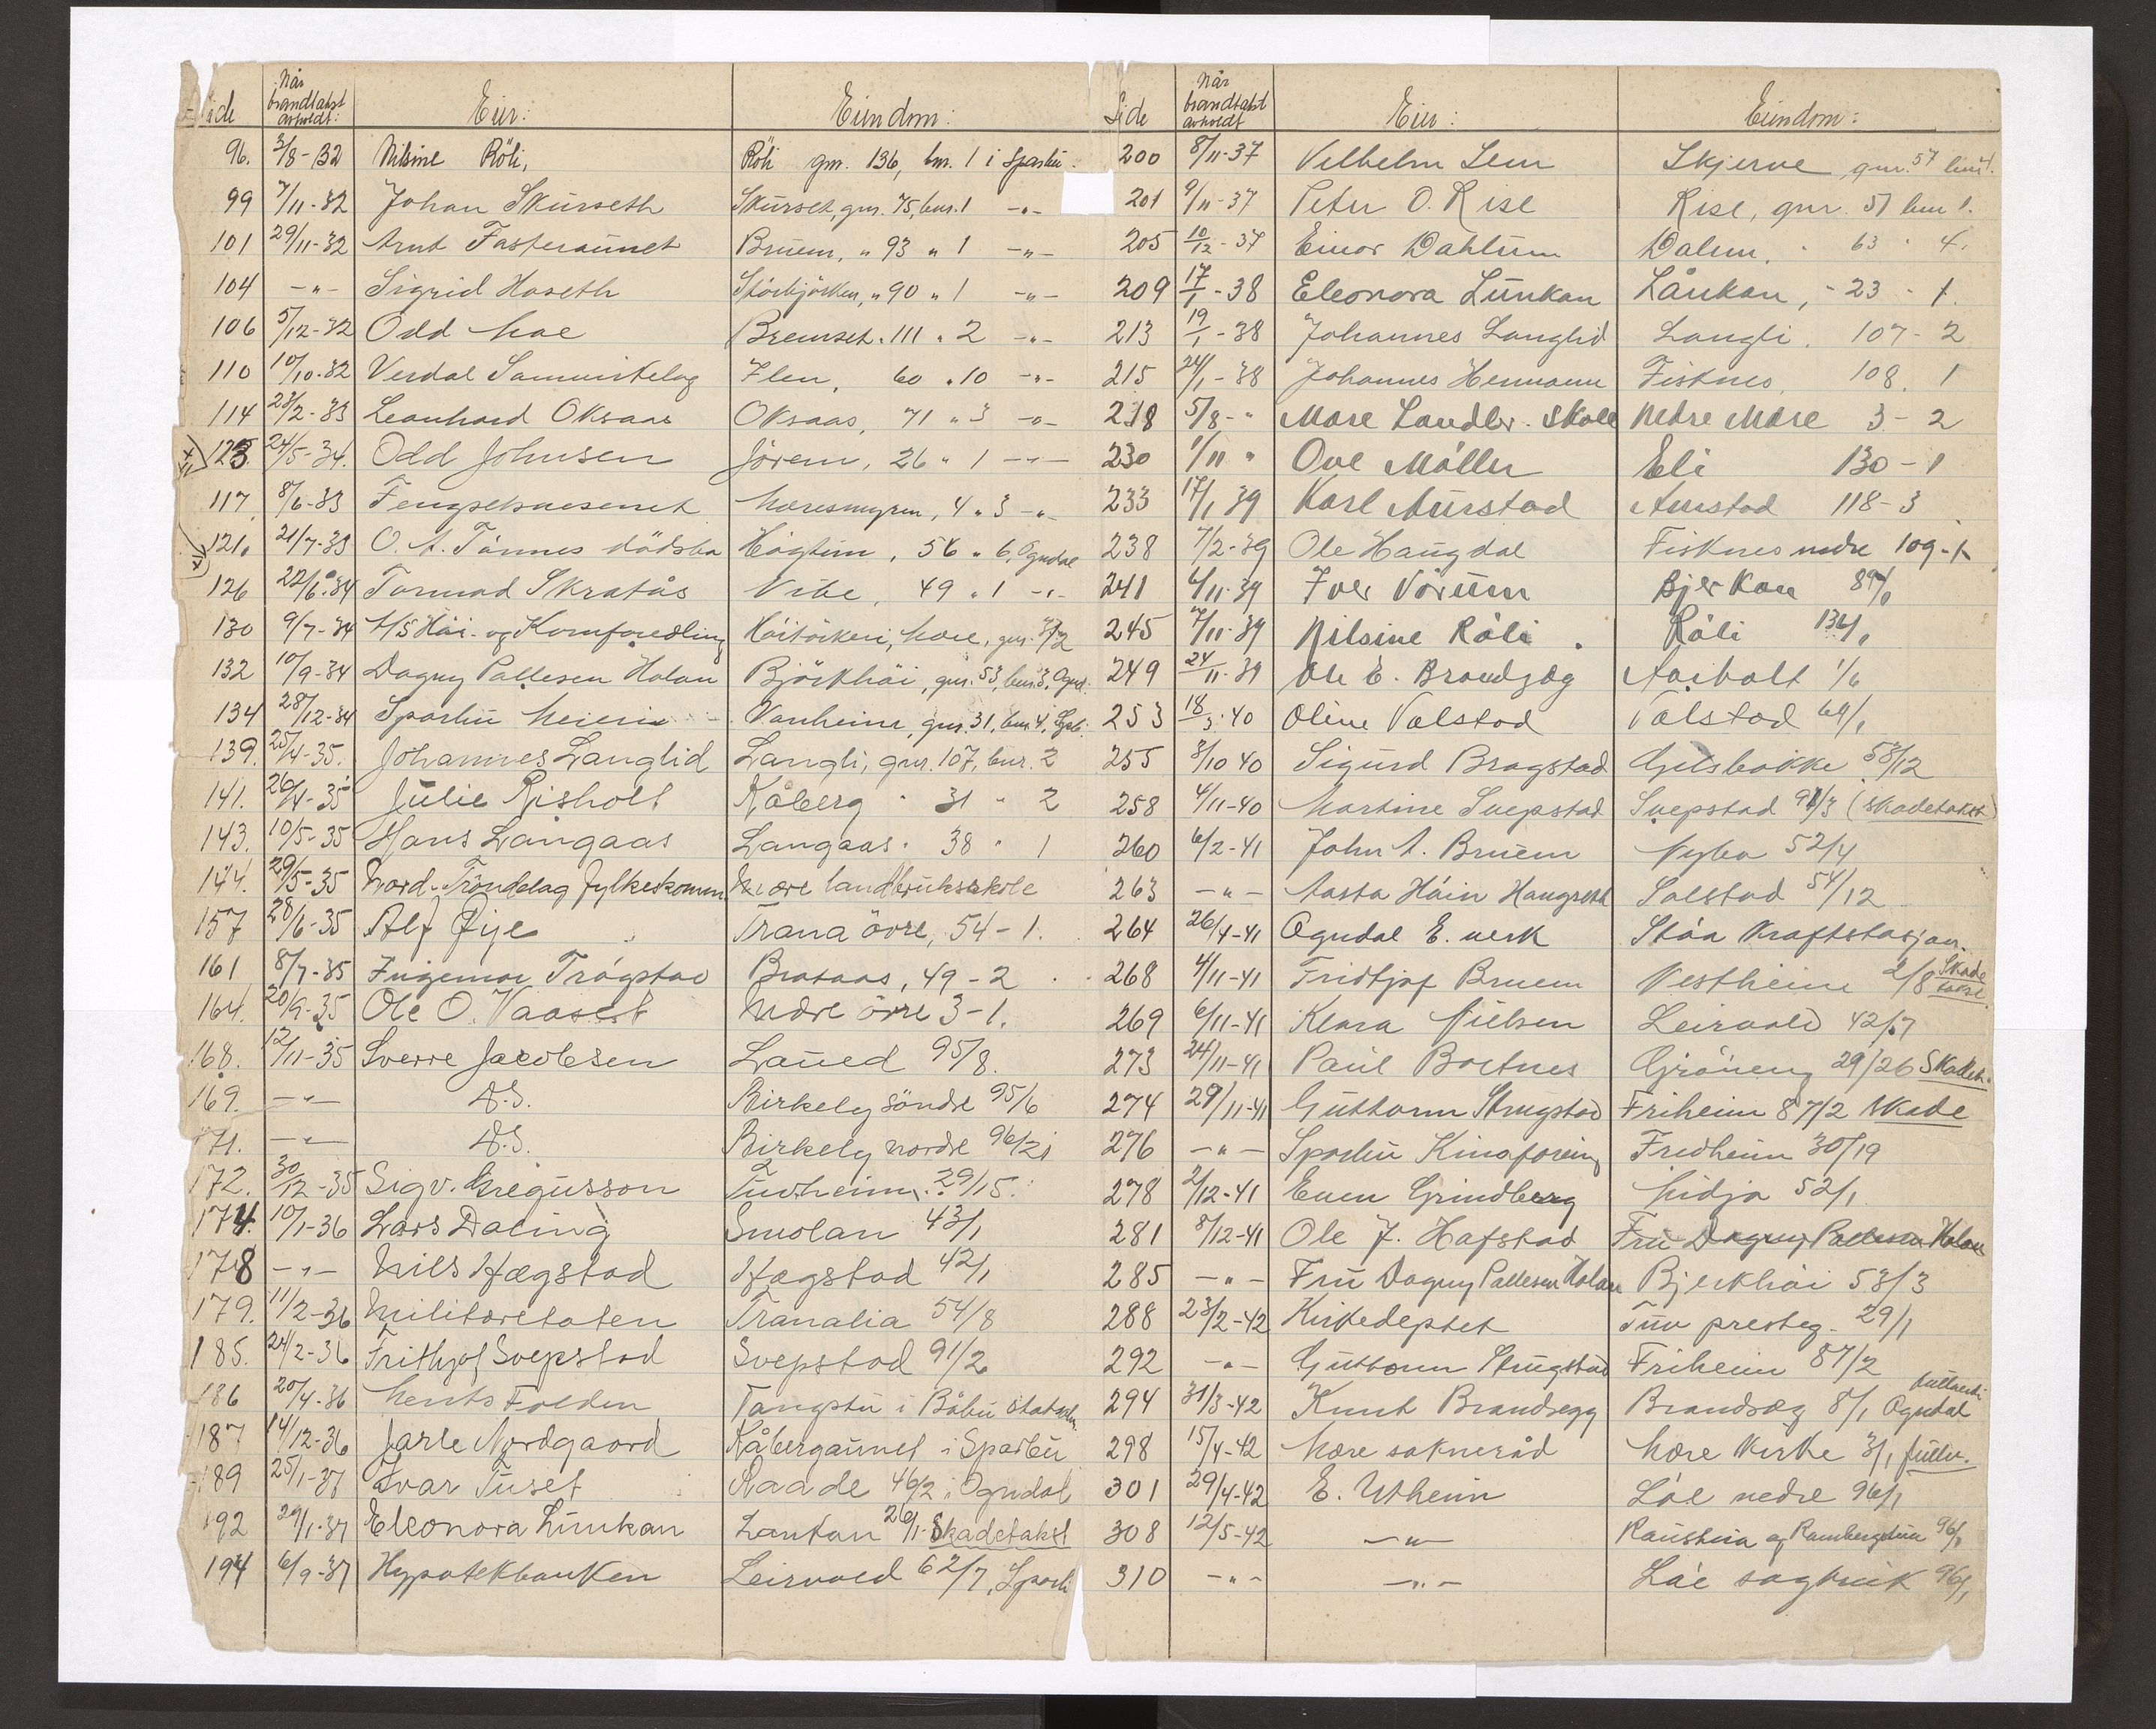 Side Når brandtakst avholdt: Eier: Eiendom:
96. 3/8-32 Nilsine Röli, Röli gnr. 136, bnr. 1 i Sparbu.
99 7/11-32 Johan Skurseth Skurset, gnr. 75, bnr. 1 -"-
101 29/11-32 Arnt Fasteraunet Bruem, " 93 " 1 -"-
104 -"- Sigrid Haseth " 90 " 1 -"-
106 5/12-32 Odd Moe Bremset " 111 " 2 -"-
110 10/10-32 Verdal Samvirkelag 60 " 10 -"-
114 23/2-33 Leonhard Oksaas Oksaas, 71 " 3 -"-
123. 24/5-34. Odd Johnsen Jörem, 26 " 1 -"-
117. 8/6-33 Fengselsvesenet Mæresmyren, 4 " 3 -"-
121. 21/7-33 O. A. Tönnes dödsbo Högtun, 56 " 6, Ogndal
126 22/6-34 Tormod Skratås Vibe, 49 " 1 -"-
130 9/7-34 A/S Höi- og Kornforedling Höitörkeri, Mære, gnr. 3/2
132 10/9-34 Dagny Pallesen Holan Björkhöi, gnr. 53, bnr. 3, Ognd.
134 28/12-34 Sparbu Meieri Vanheim, gnr. 31, bnr. 4, Spb.
139. 25/4-35. Johannes Langlid Langli, gnr. 107, bnr. 2
141. 26/4-35 Julie Risholt Kåberg " 31 " 2
143. 10/5-35 Hans Langaas Langaas " 38 " 1
144. 29/5-35 Nord-Tröndelag fylkeskomm. Mære landbruksskole
157 28/6-35 Alf Öye Trana övre, 54-1.
161 8/7-35 Ingemar Trögstad Brataas, 49-2
164. 20/9-35 Ole O. Vaaset Mære övre 3-1.
168. 12/11-35 Sverre Jacobsen Laued 95/8.
169. -"- D.S. Birkely söndre 95/6
171. -"- D.S. Birkely nordre 96/2
172. 30/12-35 Sigv. Gregusson Tuvheim. 29/15.
174. 10/1-36 Lars Daling Smolan 43/1
178 -"- Nils Hægstad Hægstad 42/1
179. 11/2-36 Militæretaten Tranalia 54/8
185. 24/2-36 Frithjof Svepstad Svepstad 91/2
186 20/4-36 Ments Folden Tangstu i Båbu
187 14/12-36 Jarle Nordgaard Kåbergaunet i Sparbu
189 25/1-37 Ivar Tuset Raade 46/2 i Ogndal
192 29/1-37 Eleonora Lunkan Lankan 26/1 Skadetakst
194 6/9-37 Hypotekbanken Leirvold 62/7, Sparb.
Side Når brandtakst avholdt Eier: Eiendom:
200 8/11-37 Vilhelm Lein Skjerve, gnr. 57 bnr. 4.
201 9/11-37 Peter O. Rise Rise, gnr. 51 bnr 1.
205 10/12-37 Einar Dahlum Dalum. " 63 " 4.
209 17/1-38 Eleonora Lunkan Lånkan, - 23 - 1.
213 19/1-38 Johannes Langlid Langli. 107-2
215 24/1-38 Johannes Hermann Fisknes, 108. 1
218 5/8-" Mære Landbr. Skole Nedre Mære 3-2
230 1/11 " Ove Möller Eli 130-1
233 17/1 39 Karl Aurstad Aurstad 118-3
238 7/2-39 Ole Haugdal Fisknes nedre 109-1
241 6/11-39 Iver Vörum Bjerkan 89/
245 7/11-39 Nilsine Röli. Röli 136/1
249 24/11-39 Ole E. Brandzæg Aasholt 1/6
253 18/3-40 Oline Valstad Valstad 64/1
255 3/10 40 Sigurd Bragstad Gilsbakke 53/12
258 4/11-40 Martine Svepstad Svepstad 91/3 (skadetakst)
260 6/2-41 John A. Bruem Nybo 52/4
263 -"- Aasta Höin Haugseth Solstad 54/12
264 26/4-41 Ogndal E. verk Støa Kraftstasjon.
268 4/11-41 Fridtjof Bruem Vestheim 2/8 Skade takst.
269 6/11-41 Klara Nielsen Leirvold 42/7
273 24/11-41 Paul Bortnes Gröneng 29/26 Skadet.
274 29/11-41 Guttorm Strugstad Friheim 87/2 Skade
276 -"- Sparbu Kinoforening Fredheim 30/19
278 2/12-41 Even Grindberg Midjo 52/1
281 8/12-41 Ole J. Hafstad Fru Dagny Pallesen Holan
285 -"- Fru Dagny Pallesen Holan Bjerkhöi 53/3
288 23/2-42 Kirkedeptet Tuv presteg. 29/1
292 -"- Guttorm Strugstad Friheim 87/2
294 31/3-42 Knut Brandsegg Brandsæg 8/1 Ogndal
298 15/4-42 Mære sokneråd Mære Kirke 3/1 fullv.
301 29/4-42 E. Utheim Löe nedre 96/1
308 12/5-42 -"- og 96/1
310 -"- -"- Löe sagbruk 96/1